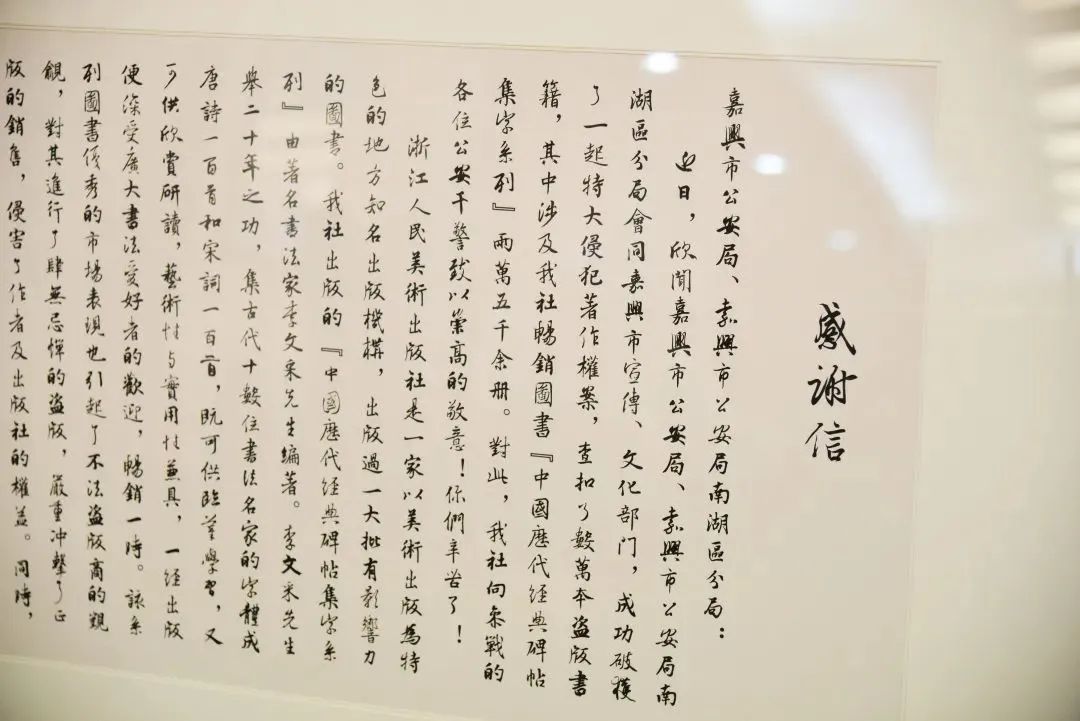 感謝信
嘉興市公安局、嘉興市公安局南湖區分局：
近日，欣聞嘉興市公安局、嘉興市公安局南
湖區分局會同嘉興市宣傳、文化部門，成功破獲
了一起特大侵犯著作權案，查扣了數萬本盜版書
籍，其中涉及我社暢銷圖書『中國歷代經典碑帖
集字系列』兩萬五千余冊。對此，我社向參戰的
各位公安干警致以崇高的敬意！你們辛苦了！
浙江人民美術出版社是一家以美術出版為特
色的地方知名出版機構，出版過一大批有影響力
的圖書。我社出版的『中國歷代經典碑帖集字系
列』由著名書法家李文采先生編著。李文采先生
舉二十年之功，集古代十數位書法名家的字體成
唐詩一百首和宋詞一百首，既可供臨筆學習，又
可供欣賞研讀，藝術性与實用性兼具，一經出版
便深受廣大書法愛好者的歡迎，暢銷一時。該系
列圖書優秀的市場表現也引起了不法盜版商的覬
覦，對其進行了肆無忌憚的盜版，嚴重冲擊了正
版的銷售，侵害了作者及出版社的權益。同時，